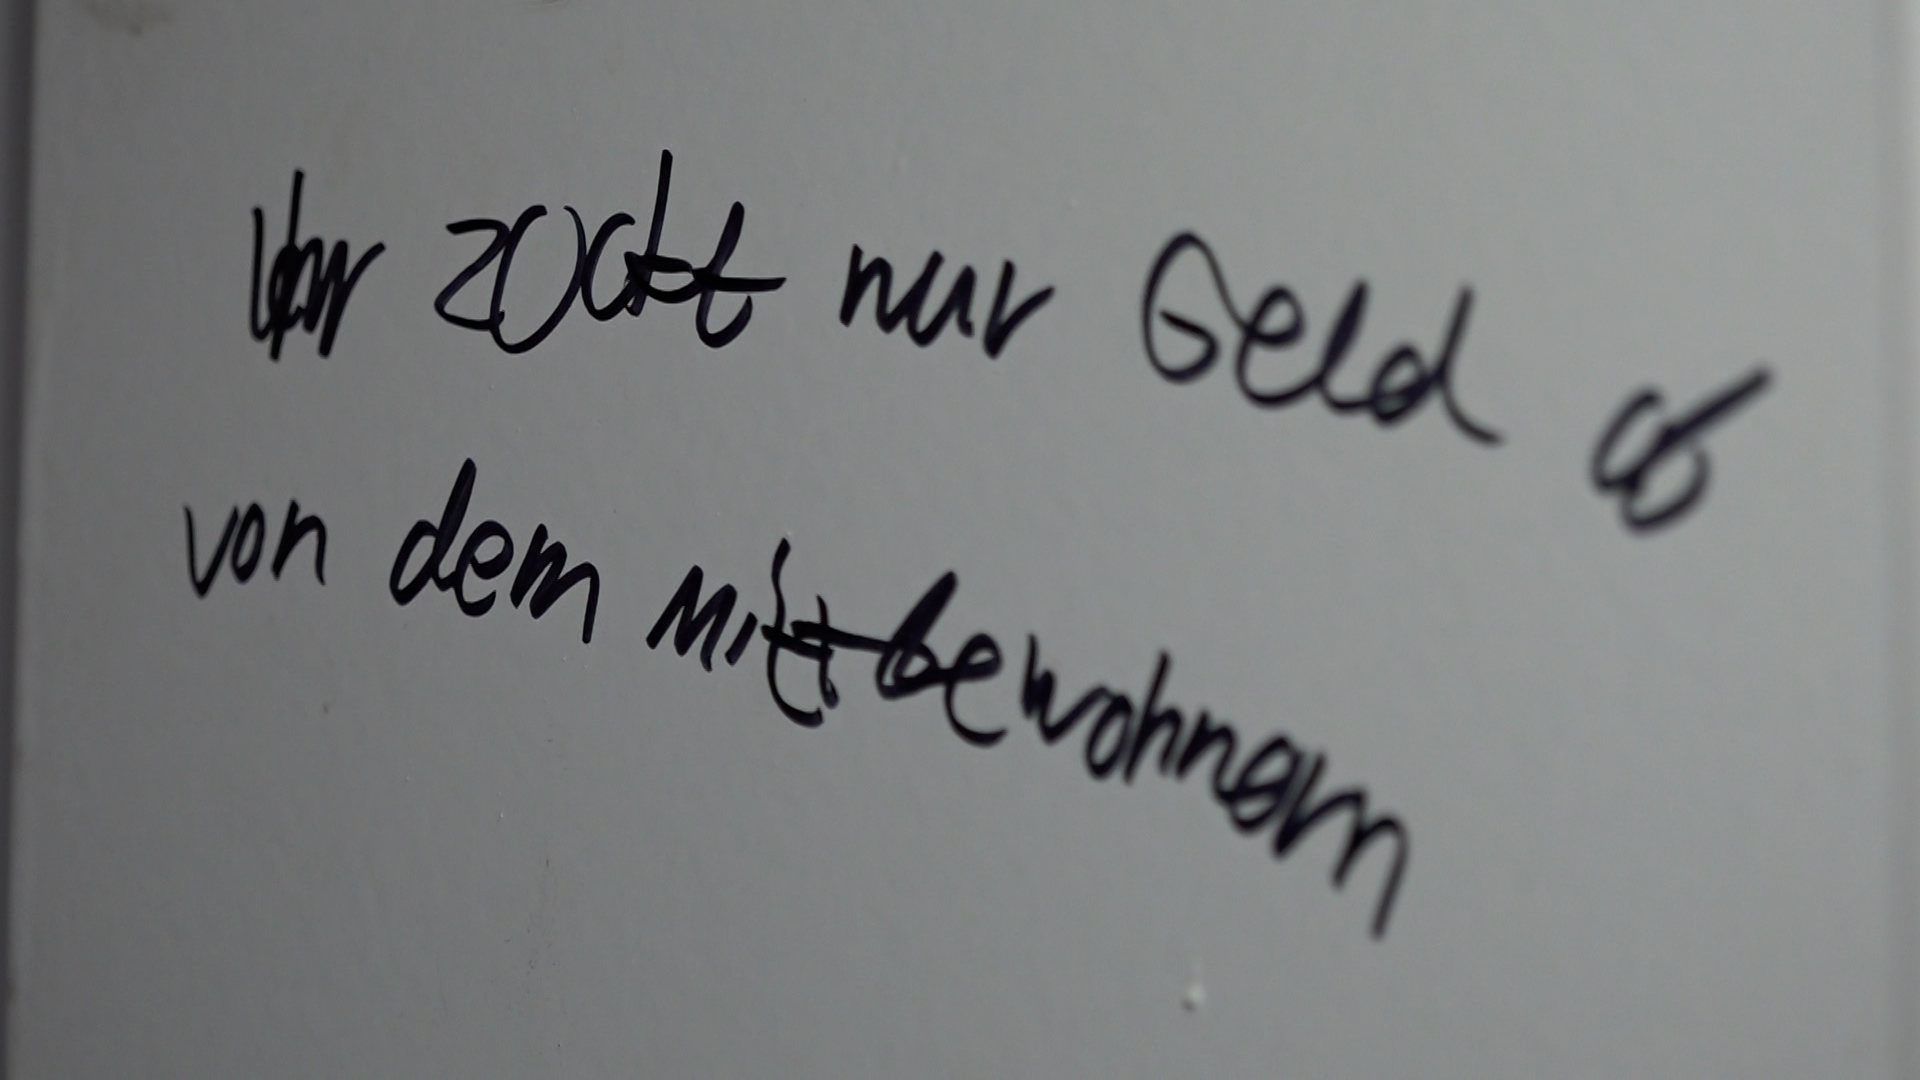 Ihr zockt nur Geld ab
von dem Mitbewohnern